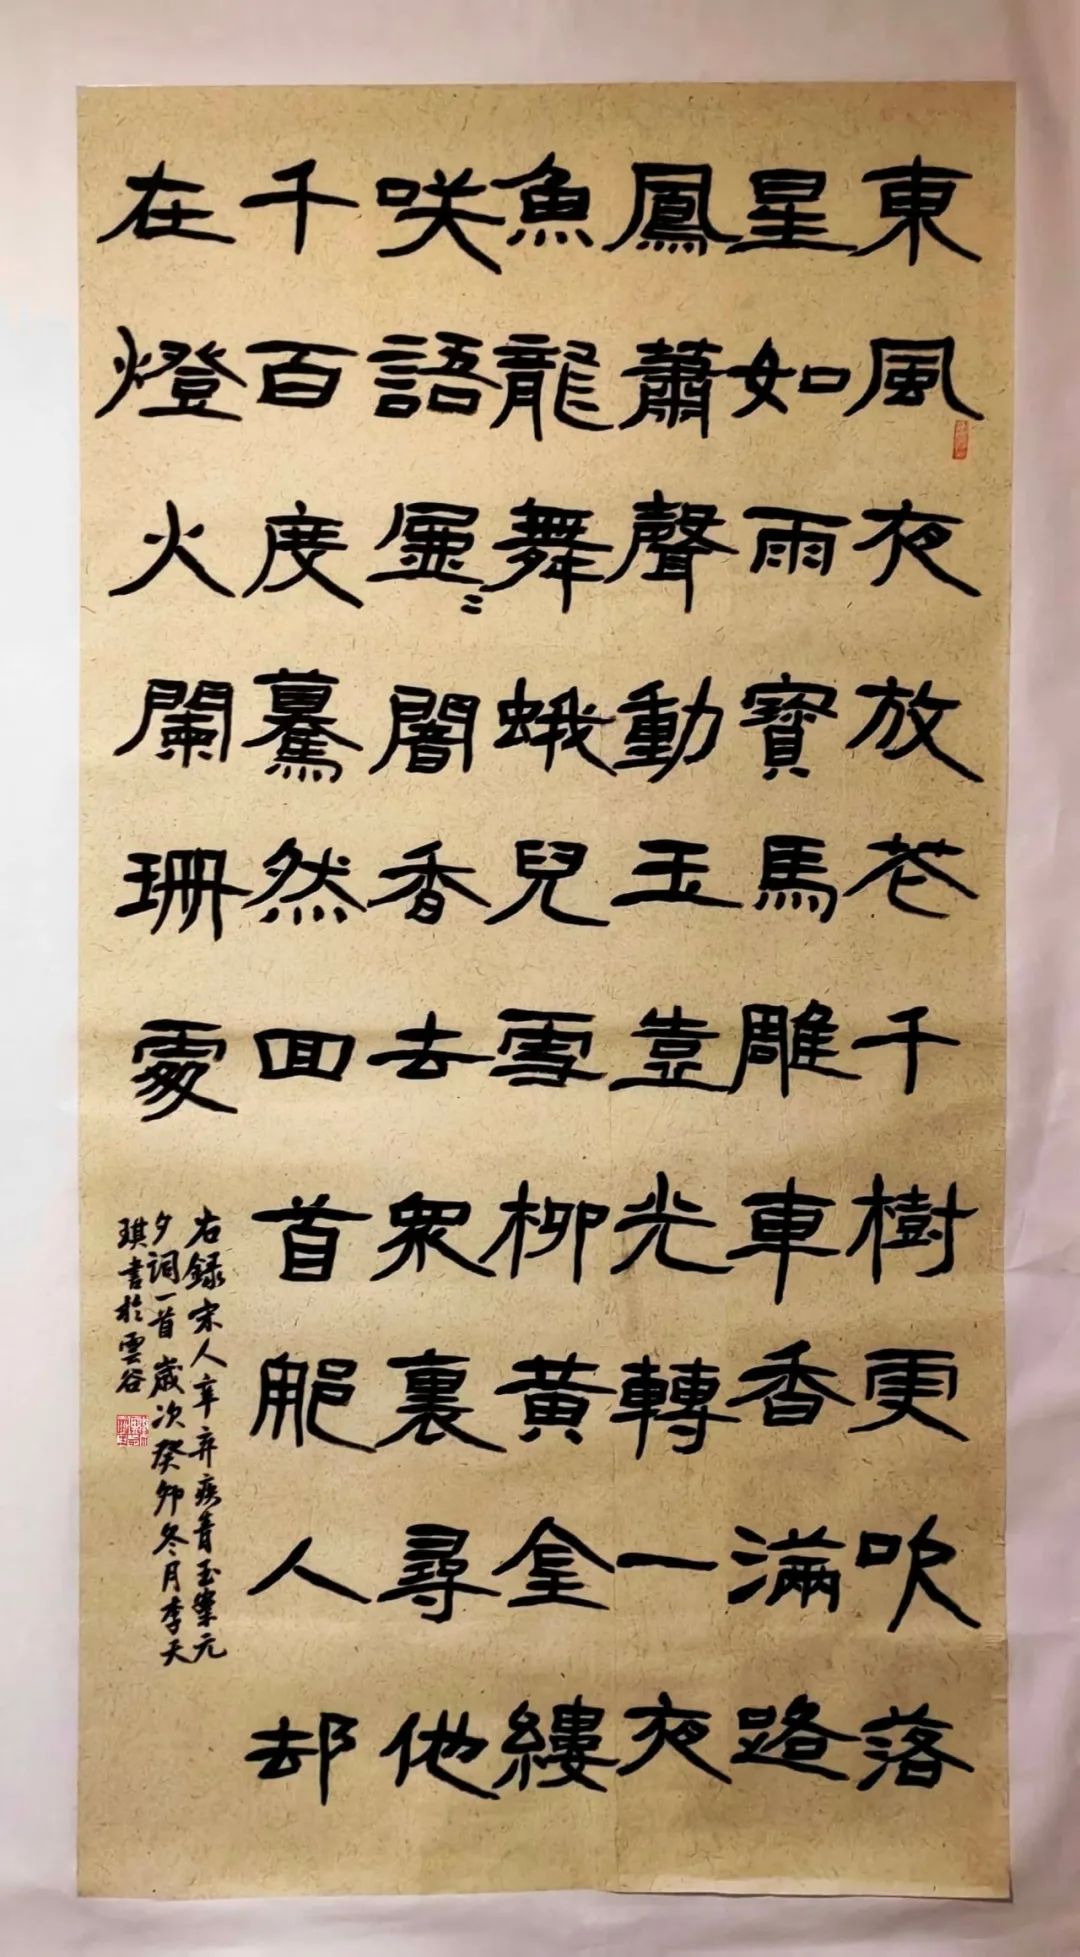 東風夜放花千樹更吹落
星如雨寶馬雕車香滿路
鳳蕭聲動玉壺光轉一夜
魚龍舞蛾兒雪柳黃金縷
咲語盈〻闇香去眾裏尋他
千百度驀然回首那人却
在燈火闌珊處
右録宋人辛弃疾青玉案元
夕詞一首歲次癸卯冬月李天
琪書於雲谷